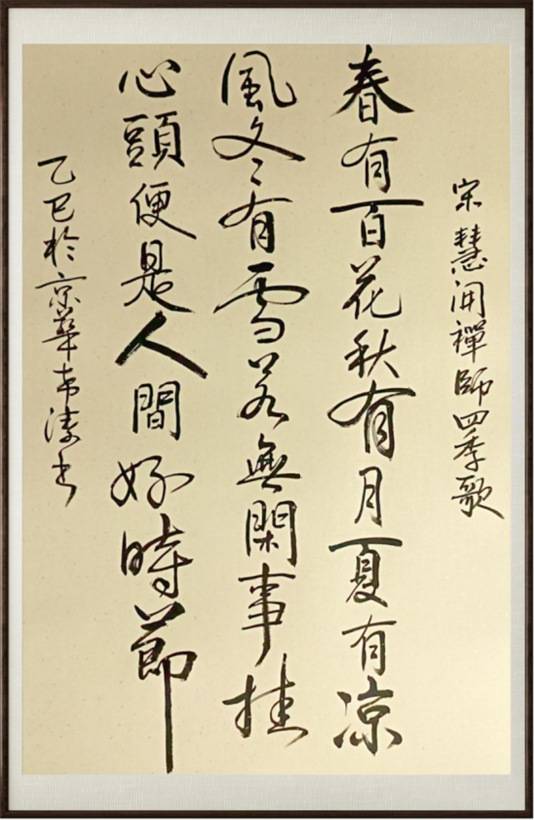 宋慧開禪師四季歌
春有百花秋有月夏有凉
風冬有雪若無閑事挂
心頭便是人間好時節
乙巳於京華书